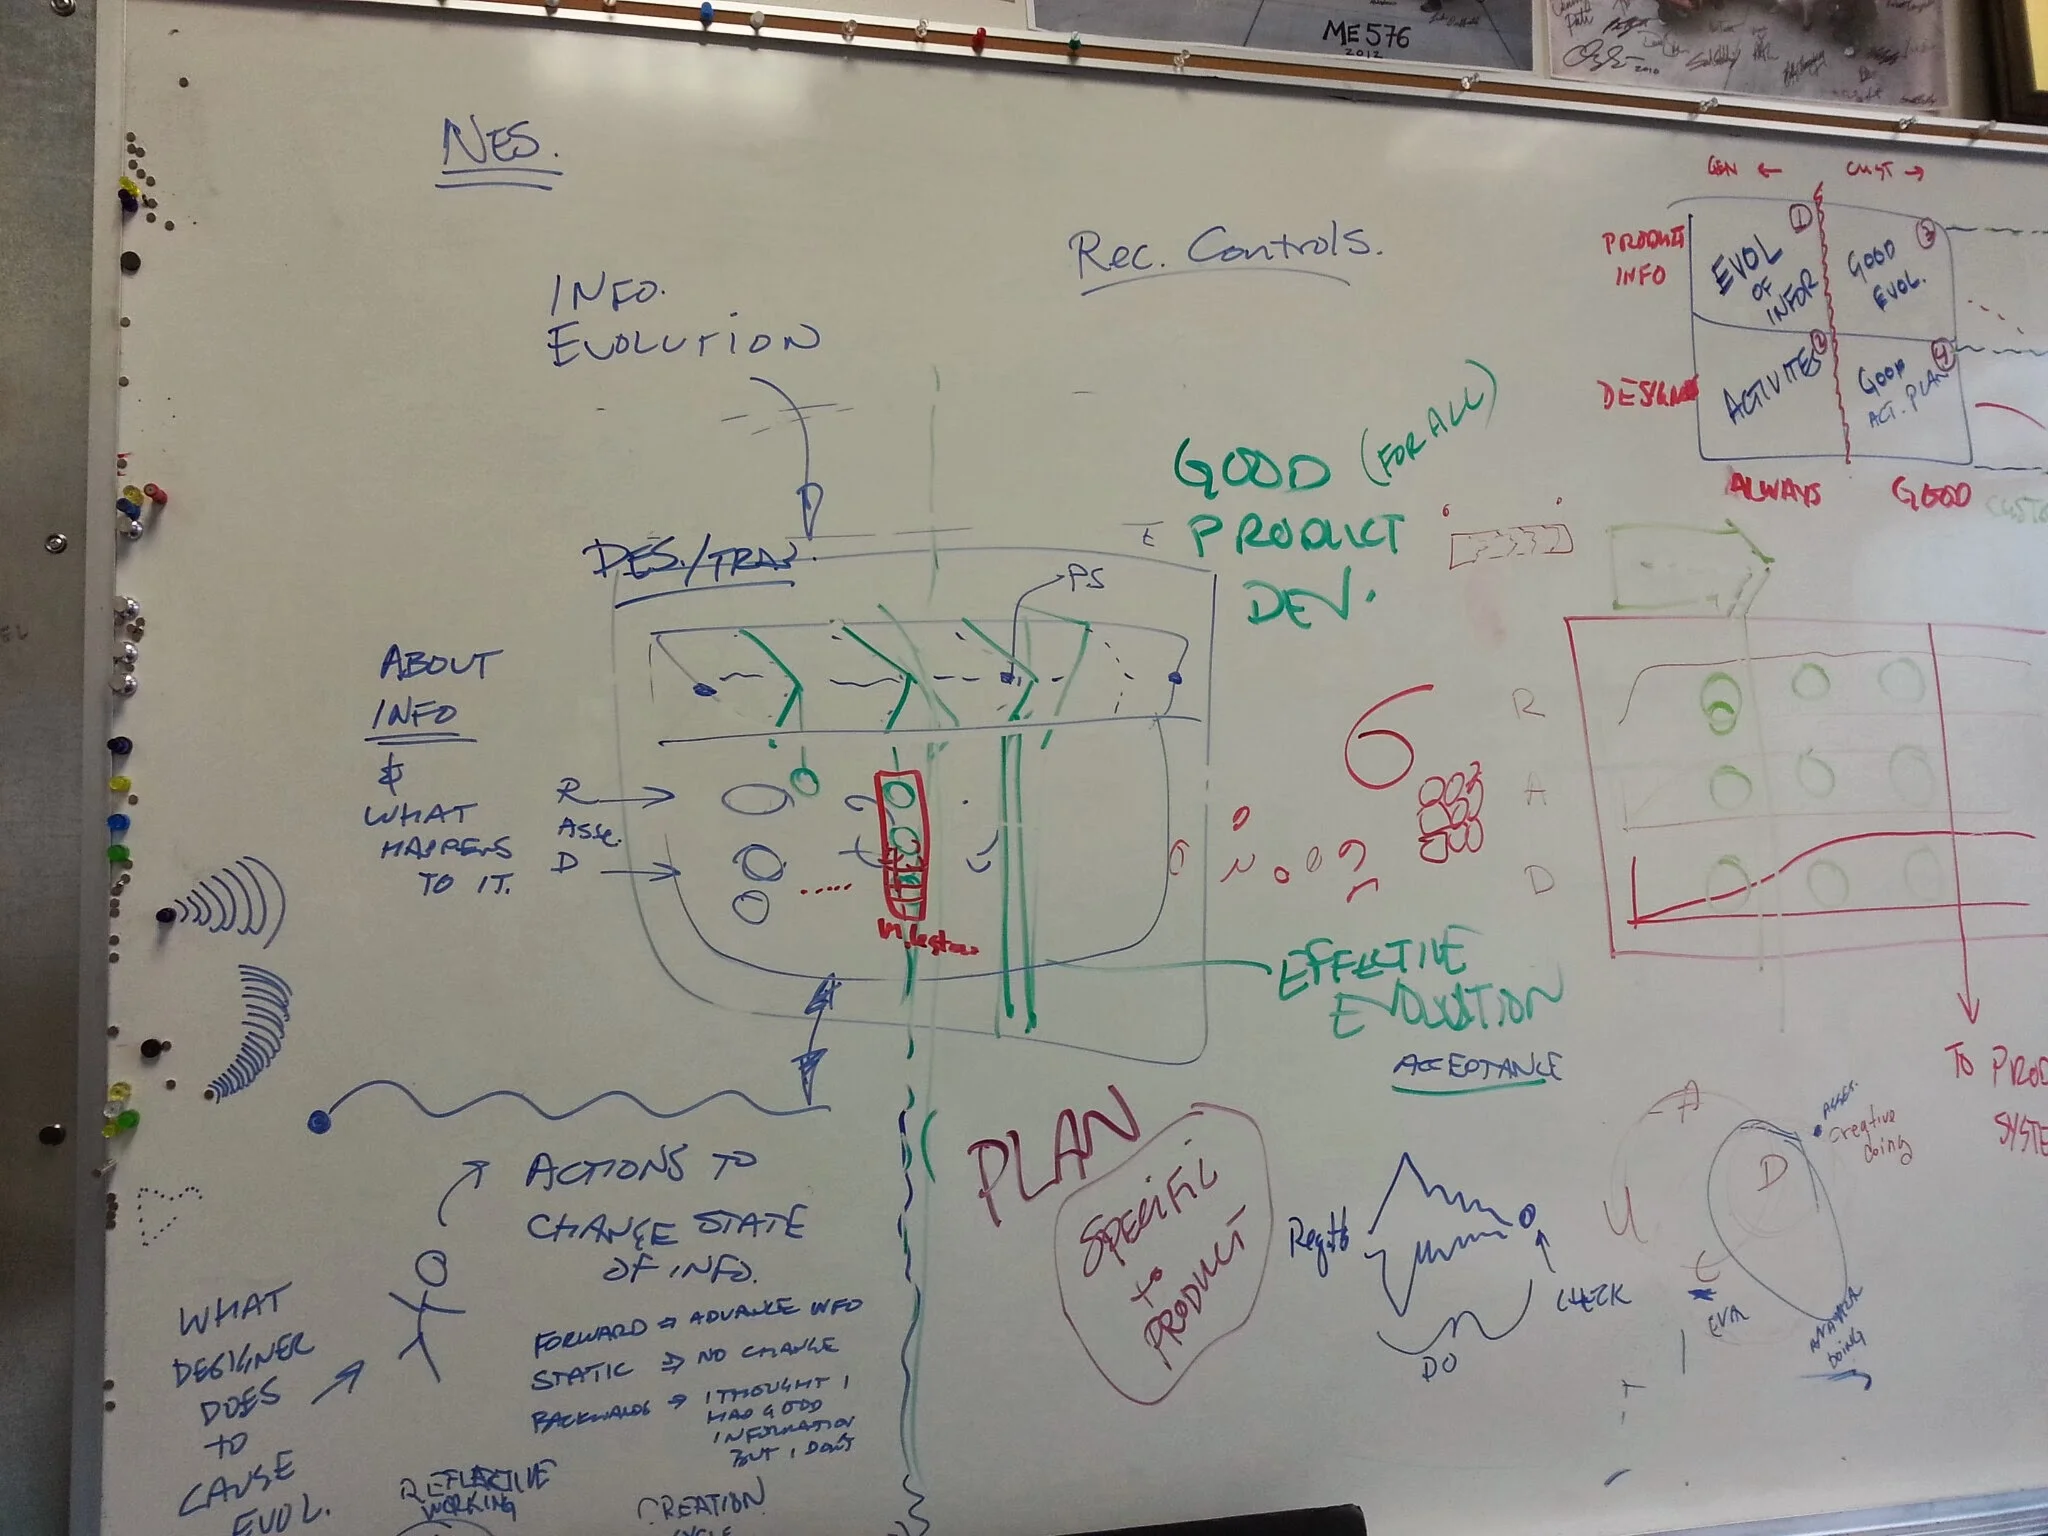 ME576
2012
2010
NES.
INFO.
EVOLUTION
Rec. Controls.
GEN ←
CUST →
PRODUCT
INFO
EVOL
OF
INFOR
1
GOOD
EVOL.
3
DESIGN
ACTIVITES
2
GOOD
ACT. PLAN
4
ALWAYS
GOOD
GOOD (FOR ALL)
PRODUCT
DEV.
DES./TRAN.
PS
ABOUT
INFO
&
WHAT
HAPPENS
TO IT.
R
ASSE.
D
6
R
A
D
EFFECTIVE
EVOLUTION
ACCEPTANCE
TO PROD
SYSTE
ACTIONS TO
CHANGE STATE
OF INFO.
FORWARD ⇒ ADVANCE INFO
STATIC ⇒ NO CHANGE
BACKWARDS → I THOUGHT I
HAD GOOD
INFORMATION
BUT I DON'T
WHAT
DESIGNER
DOES
TO
CAUSE
EVOL.
REFLECTIVE
WORKING
CREATION
CYCLE
PLAN
SPECIFIC
to
PRODUCT
CHECK
DO
A
ASSES.
Creative
doing
D
EVA
doing